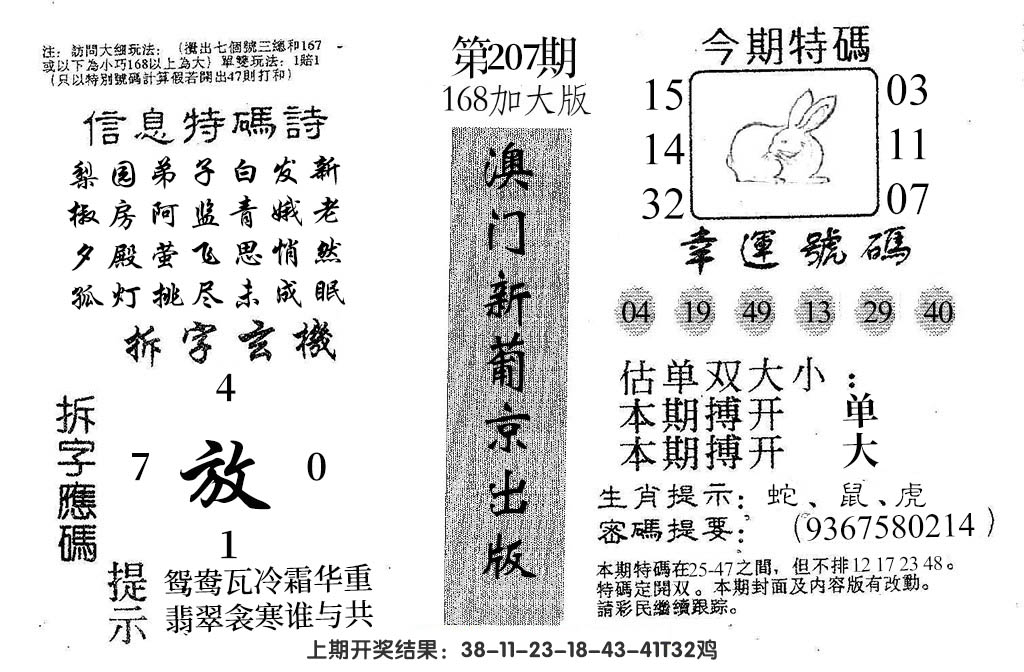 注：訪問大細玩法：(攪出七個號三總和167
或以下為小巧168以上為大）單雙玩法：1賠1
（只以特別號碼計算假若開出47則打和）
信息特碼詩
梨园弟子白发新
椒房阿监青娥老
夕殿萤飞思悄然
孤灯挑尽未成眠
拆字玄機
拆字應碼
4
7 放 0
1
提示
鸳鸯瓦冷霜华重
翡翠衾寒谁与共
第207期
168加大版
澳门新葡京出版
今期特碼
15 03
14 11
32 07
幸運號碼
04 19 49 13 29 40
估单双大小：
本期搏开 单
本期搏开 大
生肖提示：蛇、鼠、虎
密碼提要：（9367580214）
本期特碼在25-47之間，但不排12 17 23 48。
特碼定開双。本期封面及内容版有改動。
請彩民繼續跟踪。
上期开奖结果：38-11-23-18-43-41T32鸡